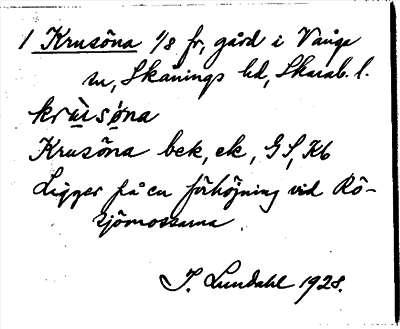 1 Krusöna 1/8 fr, gård i Vånga
sn, Skånings hd, Skarab. l.
krùsǿna
Krusöna bek, ek, GS, Kb
Ligger på en förhöjning vid Rö-
sjömossarna.
J. Lundahl 1928.